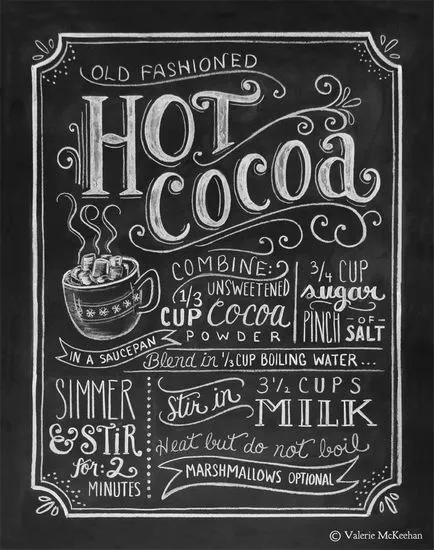 OLD FASHIONED
HOT
COCOA
COMBINE:
1/3 CUP UNSWEETENED
cocoa
POWDER
3/4 CUP
sugar
PINCH -OF- SALT
IN A SAUCEPAN
Blend in 1/3 CUP BOILING WATER...
SIMMER
& STIR
for 2
MINUTES
Stir in 3 1/2 CUPS
MILK
Heat but do not boil
MARSHMALLOWS OPTIONAL
© Valerie McKeehan